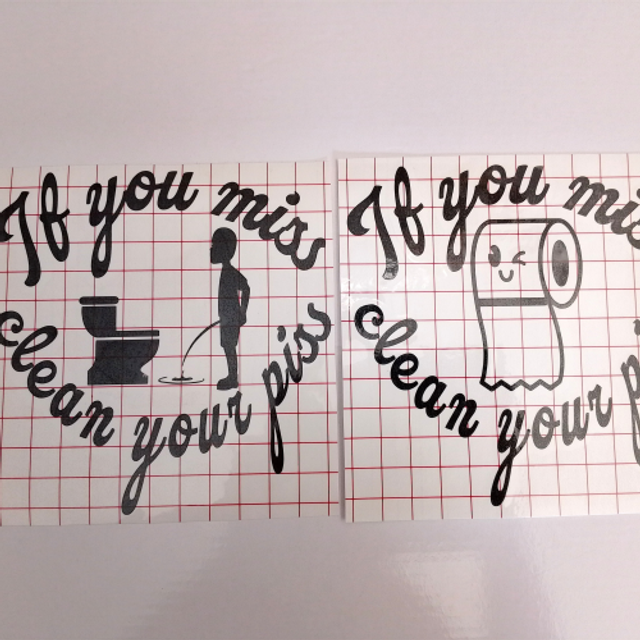 If you miss
clean your piss
If you mis
clean your p